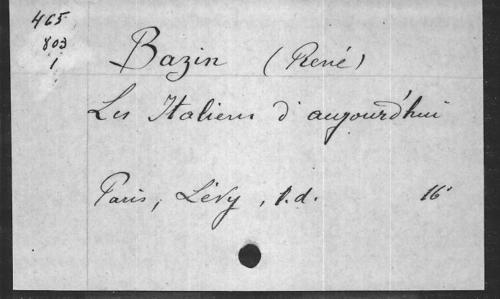 465
803
1
Bazin (René)
Les Italiens d'aujourd'hui
Paris, Lévy, s.d. 16°